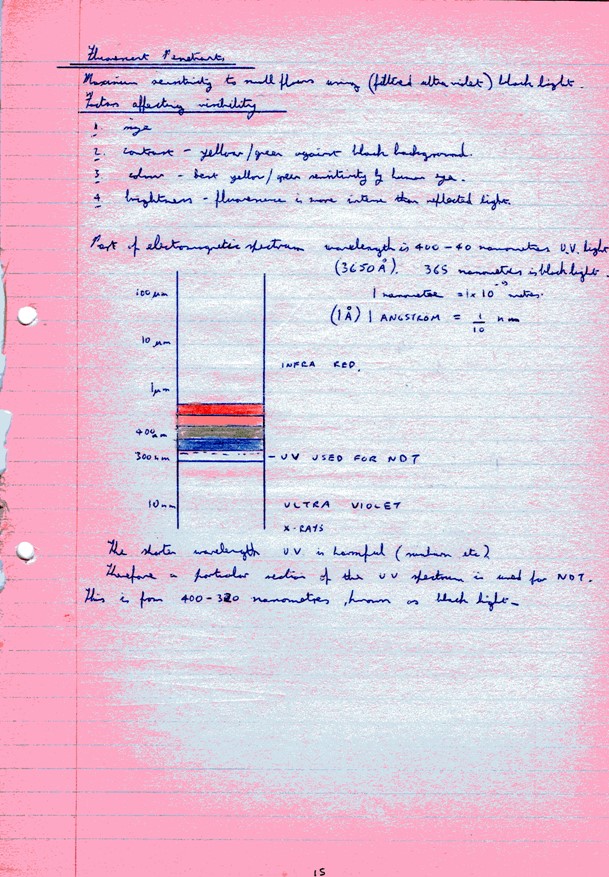 Fluorescent Penetrants.
Maximum sensitivity to small flaws using (filtered ultra violet) black light.
Factors affecting visibility
1 size
2. contrast - yellow/green against black background.
3 colour - best yellow/green sensitivity by human eye.
4 brightness - fluorescence is more intense than reflected light.
Part of electromagnetic spectrum wavelength is 400-40 nanometres U.V. light
(3650Å). 365 nanometres is black light.
1 nanometre = 1 x 10⁻⁹ metres.
(1Å) 1 ANGSTROM = 1/10 nm
100 µm
10 µm
INFRA RED.
1µm
400nm
300nm - UV USED FOR NDT
10nm ULTRA VIOLET
X-RAYS
The shorter wavelength UV is harmful (sunburn etc)
Therefore a particular section of the UV spectrum is used for NDT.
This is from 400-320 nanometres, known as black light-
15